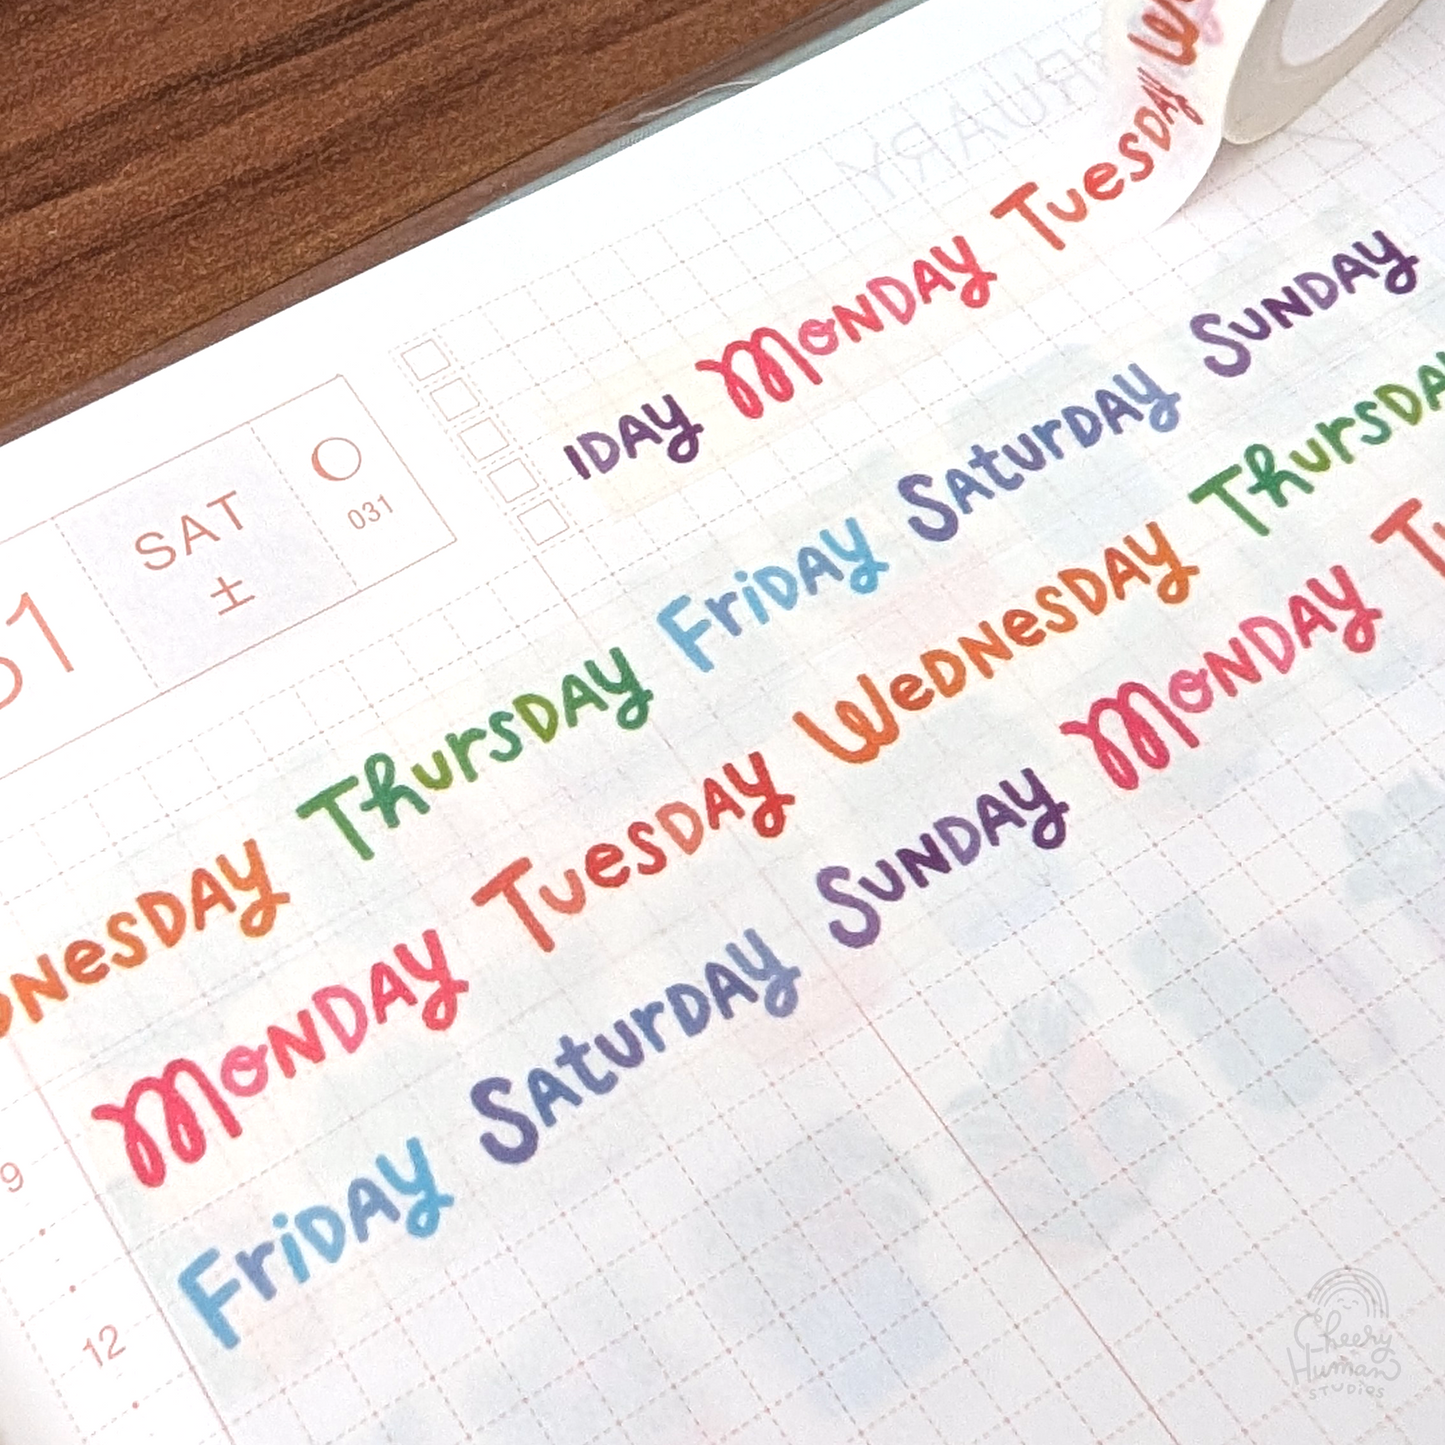 RUARY
IDAY MONDAY TUESDAY We
31 SAT 031
土
NESDAY THURSDAY FRIDAY SATURDAY SUNDAY
MONDAY TUESDAY WEDNESDAY THURSDAY
FRIDAY SATURDAY SUNDAY MONDAY Tu
9
12
Cheery
Human
STUDIOS